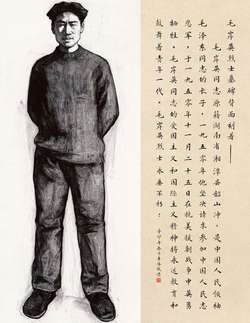 毛岸英烈士墓碑背面刻着——
毛岸英同志原籍湖南省湘潭县韶山冲,是中国人民领袖
毛泽东同志的长子,一九五零年他坚决请求参加中国人民志
愿军,于一九五零年十一月二十五日在抗美援朝战争中英勇
牺牲。毛岸英同志的爱国主义和国际主义精神将永远教育和
鼓舞着青年一代。毛岸英烈士永垂不朽!